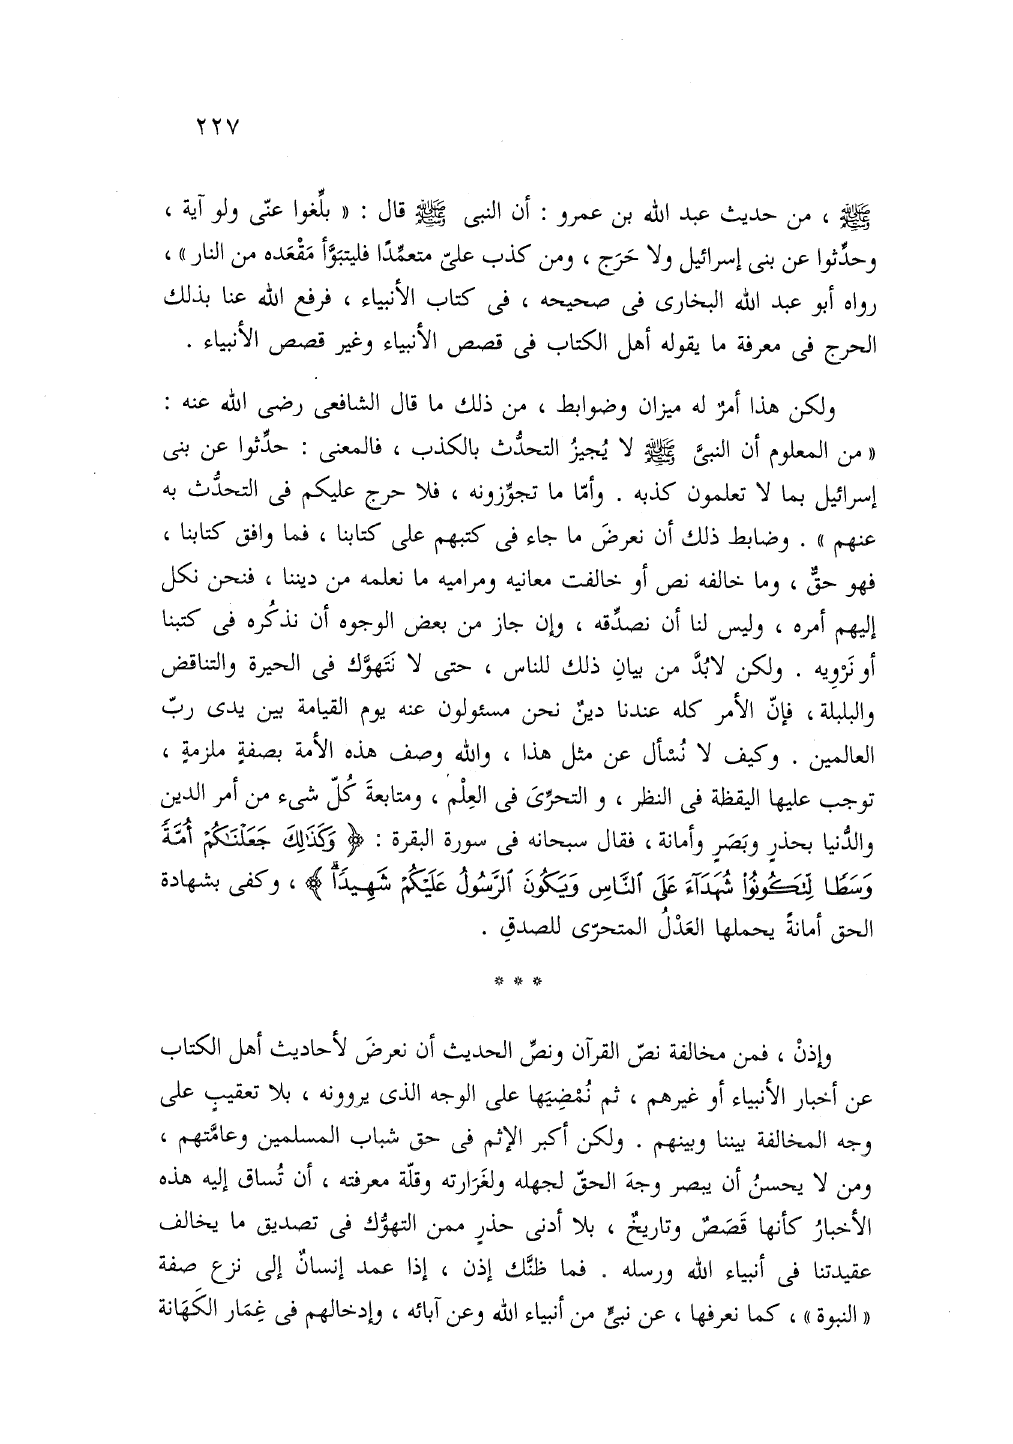 ٢٢٧
ﷺ ، من حديث عبد الله بن عمرو : أن النبى ﷺ قال : « بلِّغوا عنّى ولو آية ،
وحدِّثوا عن بنى إسرائيل ولا حَرَج ، ومن كذب علىّ متعمِّدًا فليتبَوَّأ مَقْعَده من النار » ،
رواه أبو عبد الله البخارى فى صحيحه ، فى كتاب الأنبياء ، فرفع الله عنا بذلك
الحرج فى معرفة ما يقوله أهل الكتاب فى قصص الأنبياء وغير قصص الأنبياء .
ولكن هذا أمرٌ له ميزان وضوابط ، من ذلك ما قال الشافعى رضى الله عنه :
« من المعلوم أن النبىَّ ﷺ لا يُجيزُ التحدُّث بالكذب ، فالمعنى : حدِّثوا عن بنى
إسرائيل بما لا تعلمون كذبه . وأمّا ما تجوِّزونه ، فلا حرج عليكم فى التحدُّث به
عنهم » . وضابط ذلك أن نعرضَ ما جاء فى كتبهم على كتابنا ، فما وافق كتابنا ،
فهو حقٌّ ، وما خالفه نص أو خالفت معانيه ومراميه ما نعلمه من ديننا ، فنحن نكل
إليهم أمره ، وليس لنا أن نصدِّقه ، وإن جاز من بعض الوجوه أن نذكُره فى كتبنا
أو نَرْوِيه . ولكن لابُدَّ من بيانِ ذلك للناس ، حتى لا نَتَهوَّك فى الحيرة والتناقض
والبلبلة ، فإنّ الأمر كله عندنا دينٌ نحن مسئولون عنه يوم القيامة بين يدى ربّ
العالمين . وكيف لا نُسْأل عن مثل هذا ، والله وصف هذه الأمة بصفةٍ ملزمةٍ ،
توجب عليها اليقظة فى النظر ، و التحرِّىَ فى العِلْم ، ومتابعةَ كُلّ شىء من أمر الدين
والدُّنيا بحذرٍ وبَصَرٍ وأمانة ، فقال سبحانه فى سورة البقرة : ﴿ وَكَذَٰلِكَ جَعَلْنَٰكُمْ أُمَّةً
وَسَطًا لِّتَكُونُوا۟ شُهَدَآءَ عَلَى ٱلنَّاسِ وَيَكُونَ ٱلرَّسُولُ عَلَيْكُمْ شَهِيدًاۗ ﴾ ، وكفى بشهادة
الحق أمانةً يحملها العَدْلُ المتحرّى للصدقِ .
* * *
وإذنْ ، فمن مخالفة نصّ القرآن ونصِّ الحديث أن نعرضَ لأحاديث أهل الكتاب
عن أخبار الأنبياء أو غيرهم ، ثم نُمْضِيَها على الوجه الذى يروونه ، بلا تعقيبٍ على
وجه المخالفة بيننا وبينهم . ولكن أكبر الإثم فى حق شباب المسلمين وعامَّتهم ،
ومن لا يحسنُ أن يبصر وجهَ الحقّ لجهله ولغَرَارته وقلّة معرفته ، أن تُساق إليه هذه
الأخبارُ كأنها قَصَصٌ وتاريخٌ ، بلا أدنى حذرٍ ممن التهوُّك فى تصديق ما يخالف
عقيدتنا فى أنبياء الله ورسله . فما ظنَّك إذن ، إذا عمد إنسانٌ إلى نزع صفة
« النبوة » ، كما نعرفها ، عن نبىٍّ من أنبياء الله وعن آبائه ، وإدخالهم فى غِمَار الكَهَانة